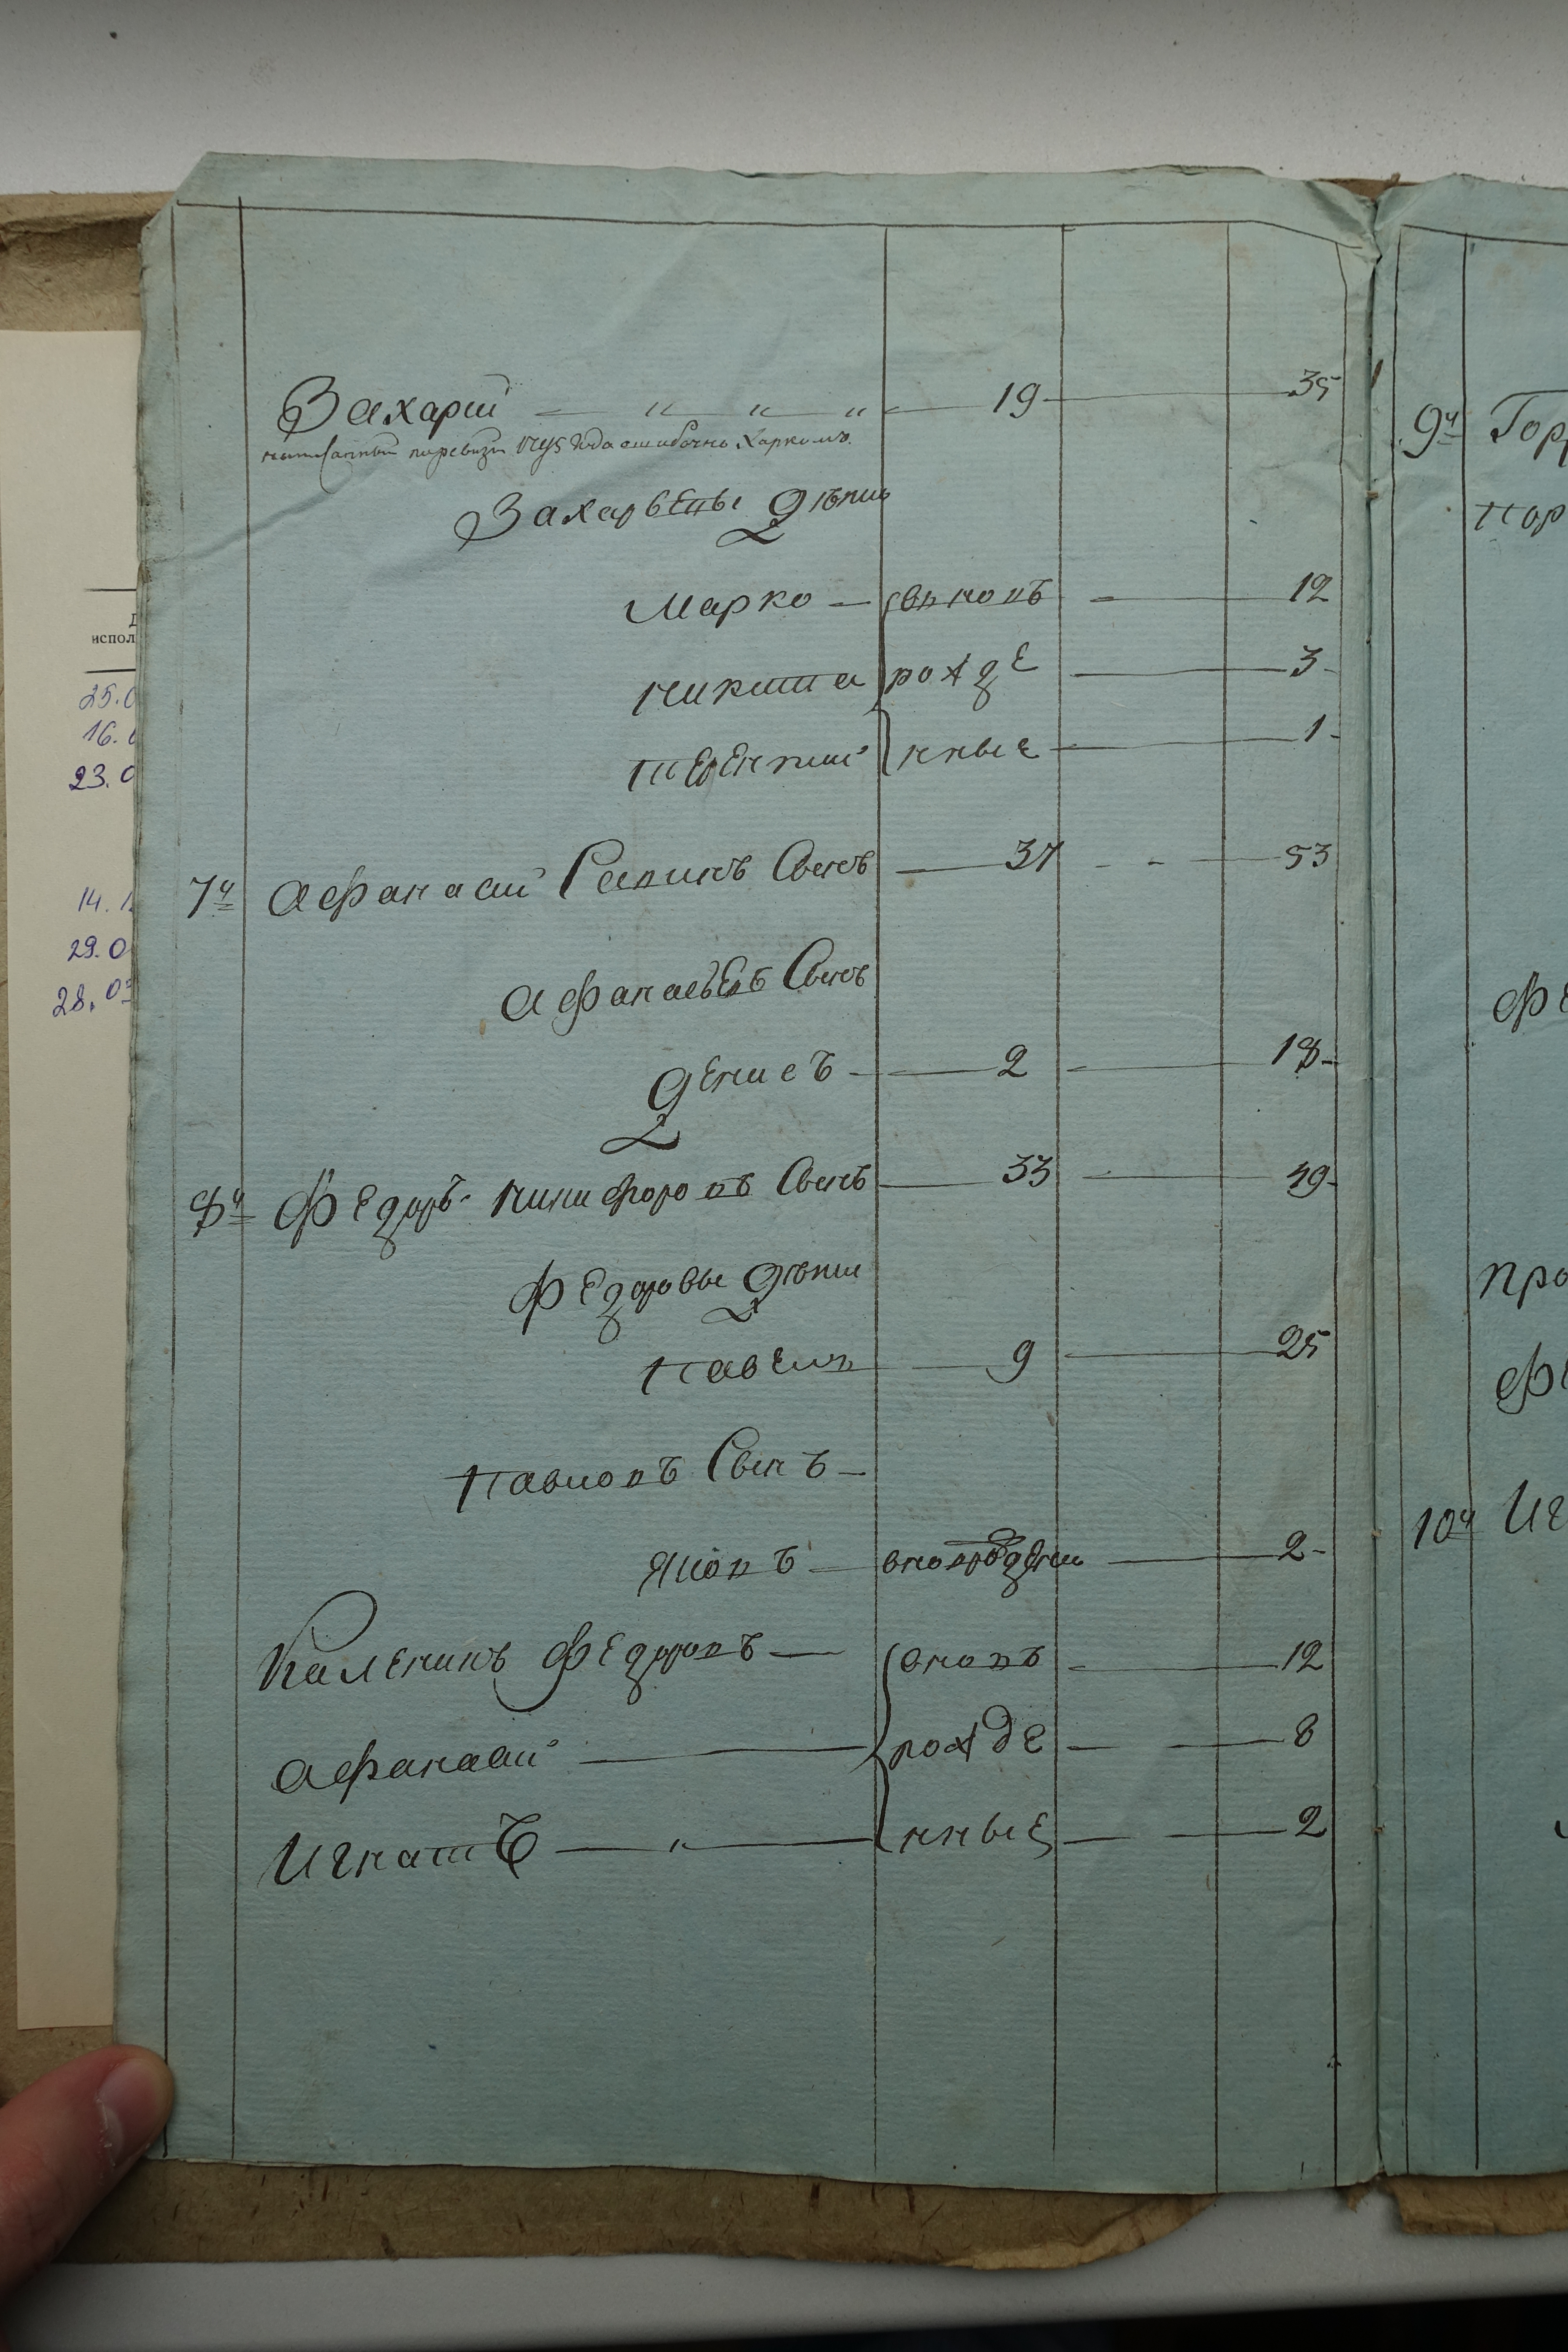 Захарий — " — " — " — 19 — 35
написанный поревизи 1795 года ошибочно Харкомъ.
Захарьевы дѣти
Марко — вновь — 12
Никита рожде — 3
Терентий нные — 1
7й Афанасий Сапинъ Сынъ — 37 — 53
Афанасьевъ Сынъ
Денисъ — 2 — 18
8й Федоръ Никифоровъ Сынъ — 33 — 49
Федоровы дѣти
Павелъ — 9 — 25
Павловъ Сынъ —
Яковъ — вновьрожденный — 2
Каленикъ Федоровъ — вновь — 12
Афанасий — рожде — 8
Игнатъ — " — нные — 2
9й
Гор
пор
Фе
про
Фе
10й Иг
Д
испол
25.0
16.0
23.0
14.1
29.0
28.03